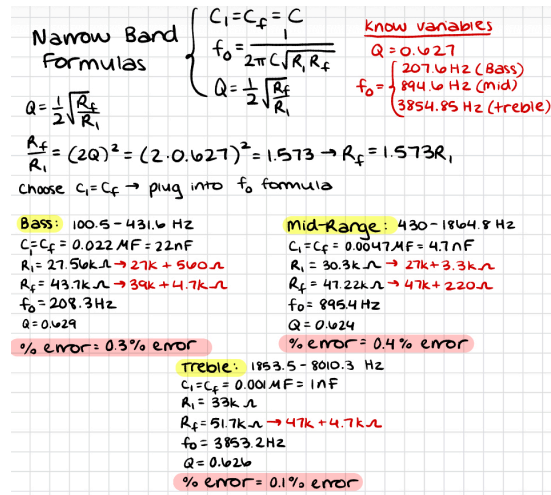 Narrow Band
Formulas
C₁=C_f=C
f₀= 1/(2πC√(R₁R_f))
Q=½√(R_f/R₁)
Know variables
Q=0.627
f₀= { 207.6 Hz (Bass)
894.6 Hz (mid)
3854.85 Hz (treble)
Q=½√(R_f/R₁)
R_f/R₁=(2Q)²=(2·0.627)²=1.573→R_f=1.573R₁
Choose C₁=C_f → plug into f₀ formula
Bass: 100.5-431.6 Hz
C₁=C_f=0.022MF=22nF
R₁=27.56kΩ→27k+560Ω
R_f=43.7kΩ→39k+4.7kΩ
f₀=208.3Hz
Q=0.629
% error=0.3% error
Mid-Range: 430-1864.8 Hz
C₁=C_f=0.0047MF=4.7nF
R₁=30.3kΩ→27k+3.3kΩ
R_f=47.22kΩ→47k+220Ω
f₀=895.4Hz
Q=0.624
% error=0.4% error
Treble: 1853.5-8010.3 Hz
C₁=C_f=0.001MF=1nF
R₁=33kΩ
R_f=51.7kΩ→47k+4.7kΩ
f₀=3853.2Hz
Q=0.626
% error=0.1% error